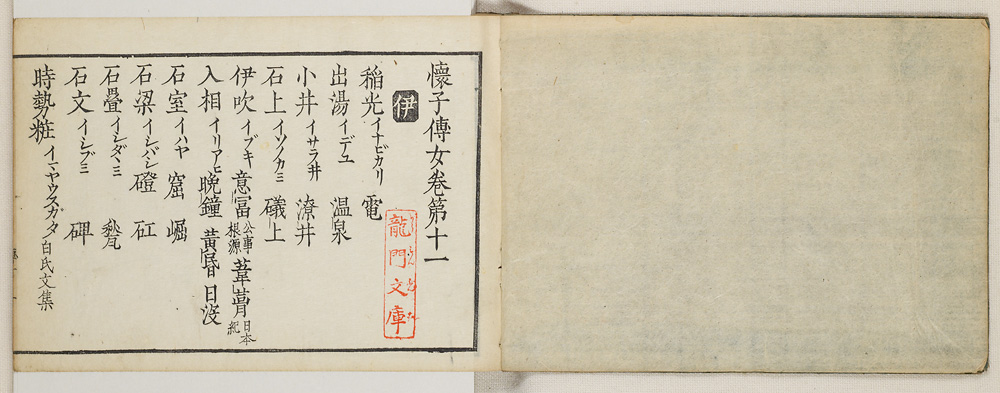 懷子傳女卷第十一
伊
稲光イナビカリ 電
出湯イデユ 温泉
小井イサラ井 潦井
石上イソノカミ 礒上
伊吹イブキ 意富 公事根源 葦萓 日本紀
入相イリアヒ 晩鐘 黄昏 日没
石室イハヤ 窟 崛
石梁イシバシ 磴 矼
石疊イシダヽミ 甃
石文イシブミ 碑
時勢粧イマヤウスガタ 白氏文集
龍門文庫